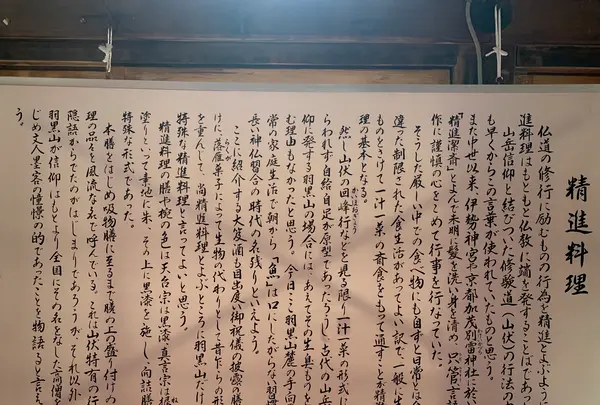 精進料理
仏道の修行に励むものの行為を精進とよぶよう
進料理はもともと仏教に端を発することはであっ
山岳信仰と結びついた修験道(山伏)の行法の
も早くからこの言葉が使われていたものと思う。
また中世以来、伊勢神宮や京都加茂別雷神社に於い
「精進潔斎」とよんで未明に髪を洗い身を清め、只管言語
作に謹慎の心をこめて行事を行なっていた。
そうした厳しい中での食べ物にも自ずと日常とは全
違った制限された食生活があってよい訳で、一般に生
ものとさけて一汁一菜の斎食をもって通すことが精進
理の基本となる。
然し山伏の回峰行などを見る限り一汁一菜の形式に
らわれず自給自足が原型であったろうし、古代の山岳
仰に発する羽黒山の場合には、あえてその生臭ものを
む理由もなかったと思う。今日ここ羽黒山麓の手向
常の家庭生活で朝から「魚」は口にしたがらない習慣
長い神仏習合の時代の名残りといえよう。
ここに紹介する大笈酒も目出度い御祝儀の披露の膳
けに、落雁菓子によって生物の代わりとして昔乍らの形
を重んじて、尚精進料理とよぶところに羽黒山だけ
特殊な精進料理と言ってよいと思う。
精進料理の膳や椀の色は天台宗は黒漆、真言宗は根
塗りといって素地に朱、その上に黒漆を施し、向詰膳
特殊な形式であった。
本膳をはじめ吸物膳に至るまで膳の上の盛り付けの
理の品々を風流な名で呼んでいる。これは山伏特有の行
隠語からでたのがはじまりであろうが、それ以外
羽黒山が信仰はもとより全国にその名をなした高僧
じめ文人墨客の憧憬の的であったことを物語ると言え
う。